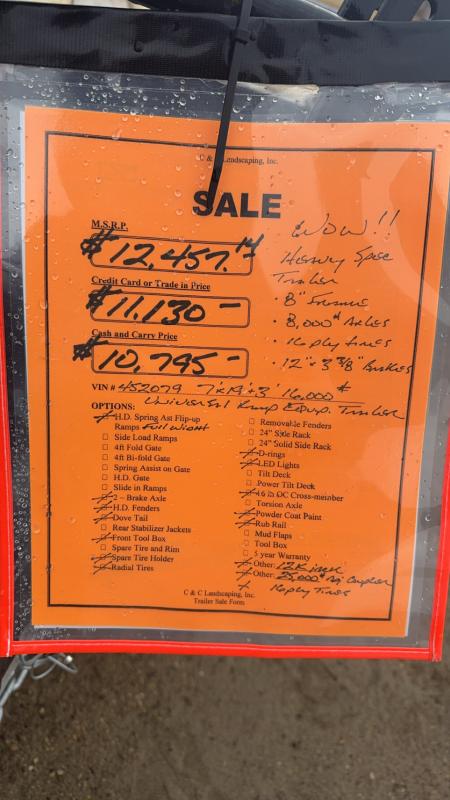 C & C Landscaping, Inc.
SALE
WOW!!
M.S.R.P.
$12,457.14
Heavy Spec
Trailer
Credit Card or Trade in Price
• 8" Frame
$11,130 –
• 8,000# Axles
Cash and Carry Price
• 16 ply tires
$10,795 –
• 12" x 3 3/8" Brakes
VIN # 452079 7'x19'+3' 16,000#
Universal Ramp Equip. Trailer
OPTIONS:
H.D. Spring Ast Flip-up
Ramps Full Width
Side Load Ramps
4ft Fold Gate
4ft Bi-fold Gate
Spring Assist on Gate
H.D. Gate
Slide in Ramps
2 – Brake Axle
H.D. Fenders
Dove Tail
Rear Stabilizer Jackets
Front Tool Box
Spare Tire and Rim
Spare Tire Holder
Radial Tires
Removable Fenders
24" Side Rack
24" Solid Side Rack
D-rings
LED Lights
Tilt Deck
Power Tilt Deck
16 in OC Cross-member
Torsion Axle
Powder Coat Paint
Rub Rail
Mud Flaps
Tool Box
5 year Warranty
Other: 12K jack
Other: 25,000# Adj Coupler
16 ply Tires
C & C Landscaping, Inc.
Trailer Sale Form